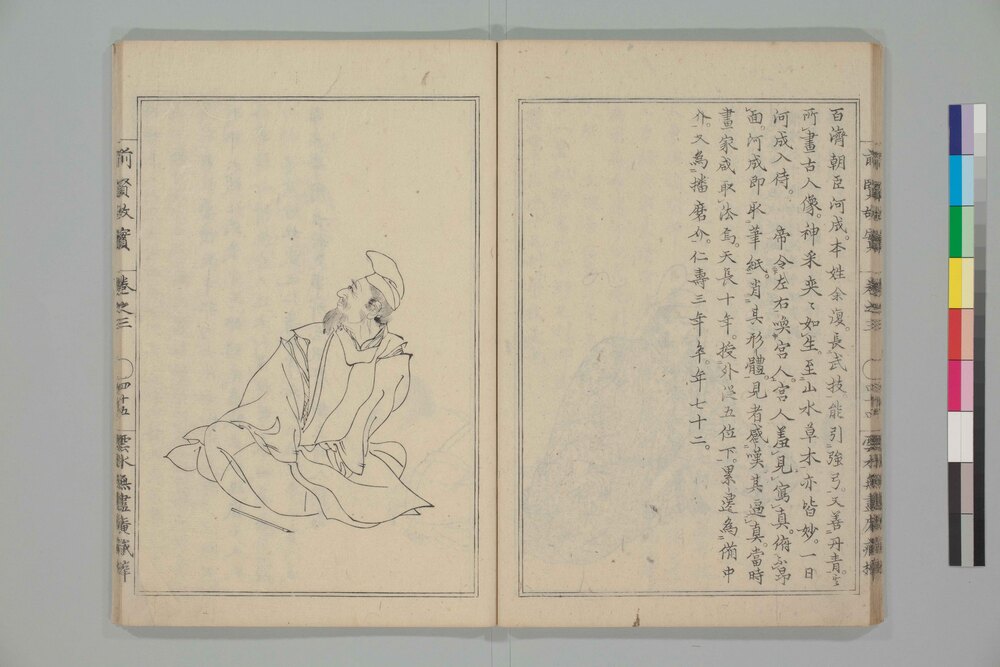 百濟朝臣河成。本姓余。後長武技。能引強弓。又善丹青。
所畫古人像。神采奕々如生。至山水草木亦皆妙。一日
河成入侍。帝令左右喚宮人。宮人羞見寫真。俯不昂
面。河成即取筆紙。肖其形體。見者感嘆其逼真。當時
畫家咸取法焉。天長十年。授外從五位下。累遷為備中
介。又為播磨介。仁壽三年卒。年七十二。
前賢故實
卷之三
四十五
雲水無盡庵藏梓